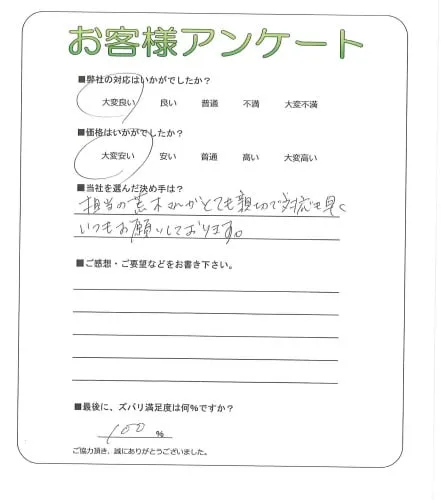 お客様アンケート
■弊社の対応はいかがでしたか?
大変良い 良い 普通 不満 大変不満
■価格はいかがでしたか?
大変安い 安い 普通 高い 大変高い
■当社を選んだ決め手は?
担当の荒木さんがとても親切で対応も早く
いつもお願いしております。
■ご感想・ご要望などをお書き下さい。
■最後に、ズバリ満足度は何%ですか?
100 %
ご協力頂き、誠にありがとうございました。